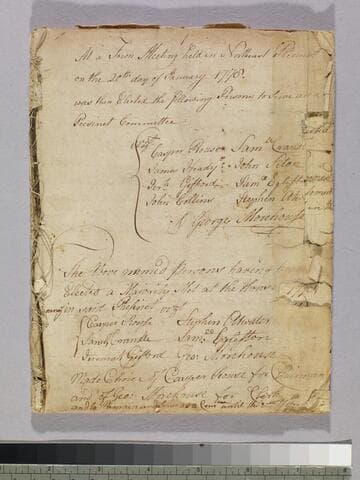 At a Town Meeting held in Northeast Precinct
on the 20th day of January 1776.
was then Elected the following Persons to Serve as a
Precinct Committee
Vizt
Casper Rouse Saml Crandl
James Heady John Selon
Jerh Gifford Saml Eggles
John Collins Stephen Atw
& George Morehouse
The Above named Persons having been
Elected a Majority Met at the House
in said Precinct vizt
Casper Rouse Stephen Attwater
Saml Crandle Saml
Jeremiah Gifford Geo: Morehouse
Made Choice of Casper Rouse for Chairman
and of Geo: Morehouse for Clerk
and to Remain and Serve as a Com until the